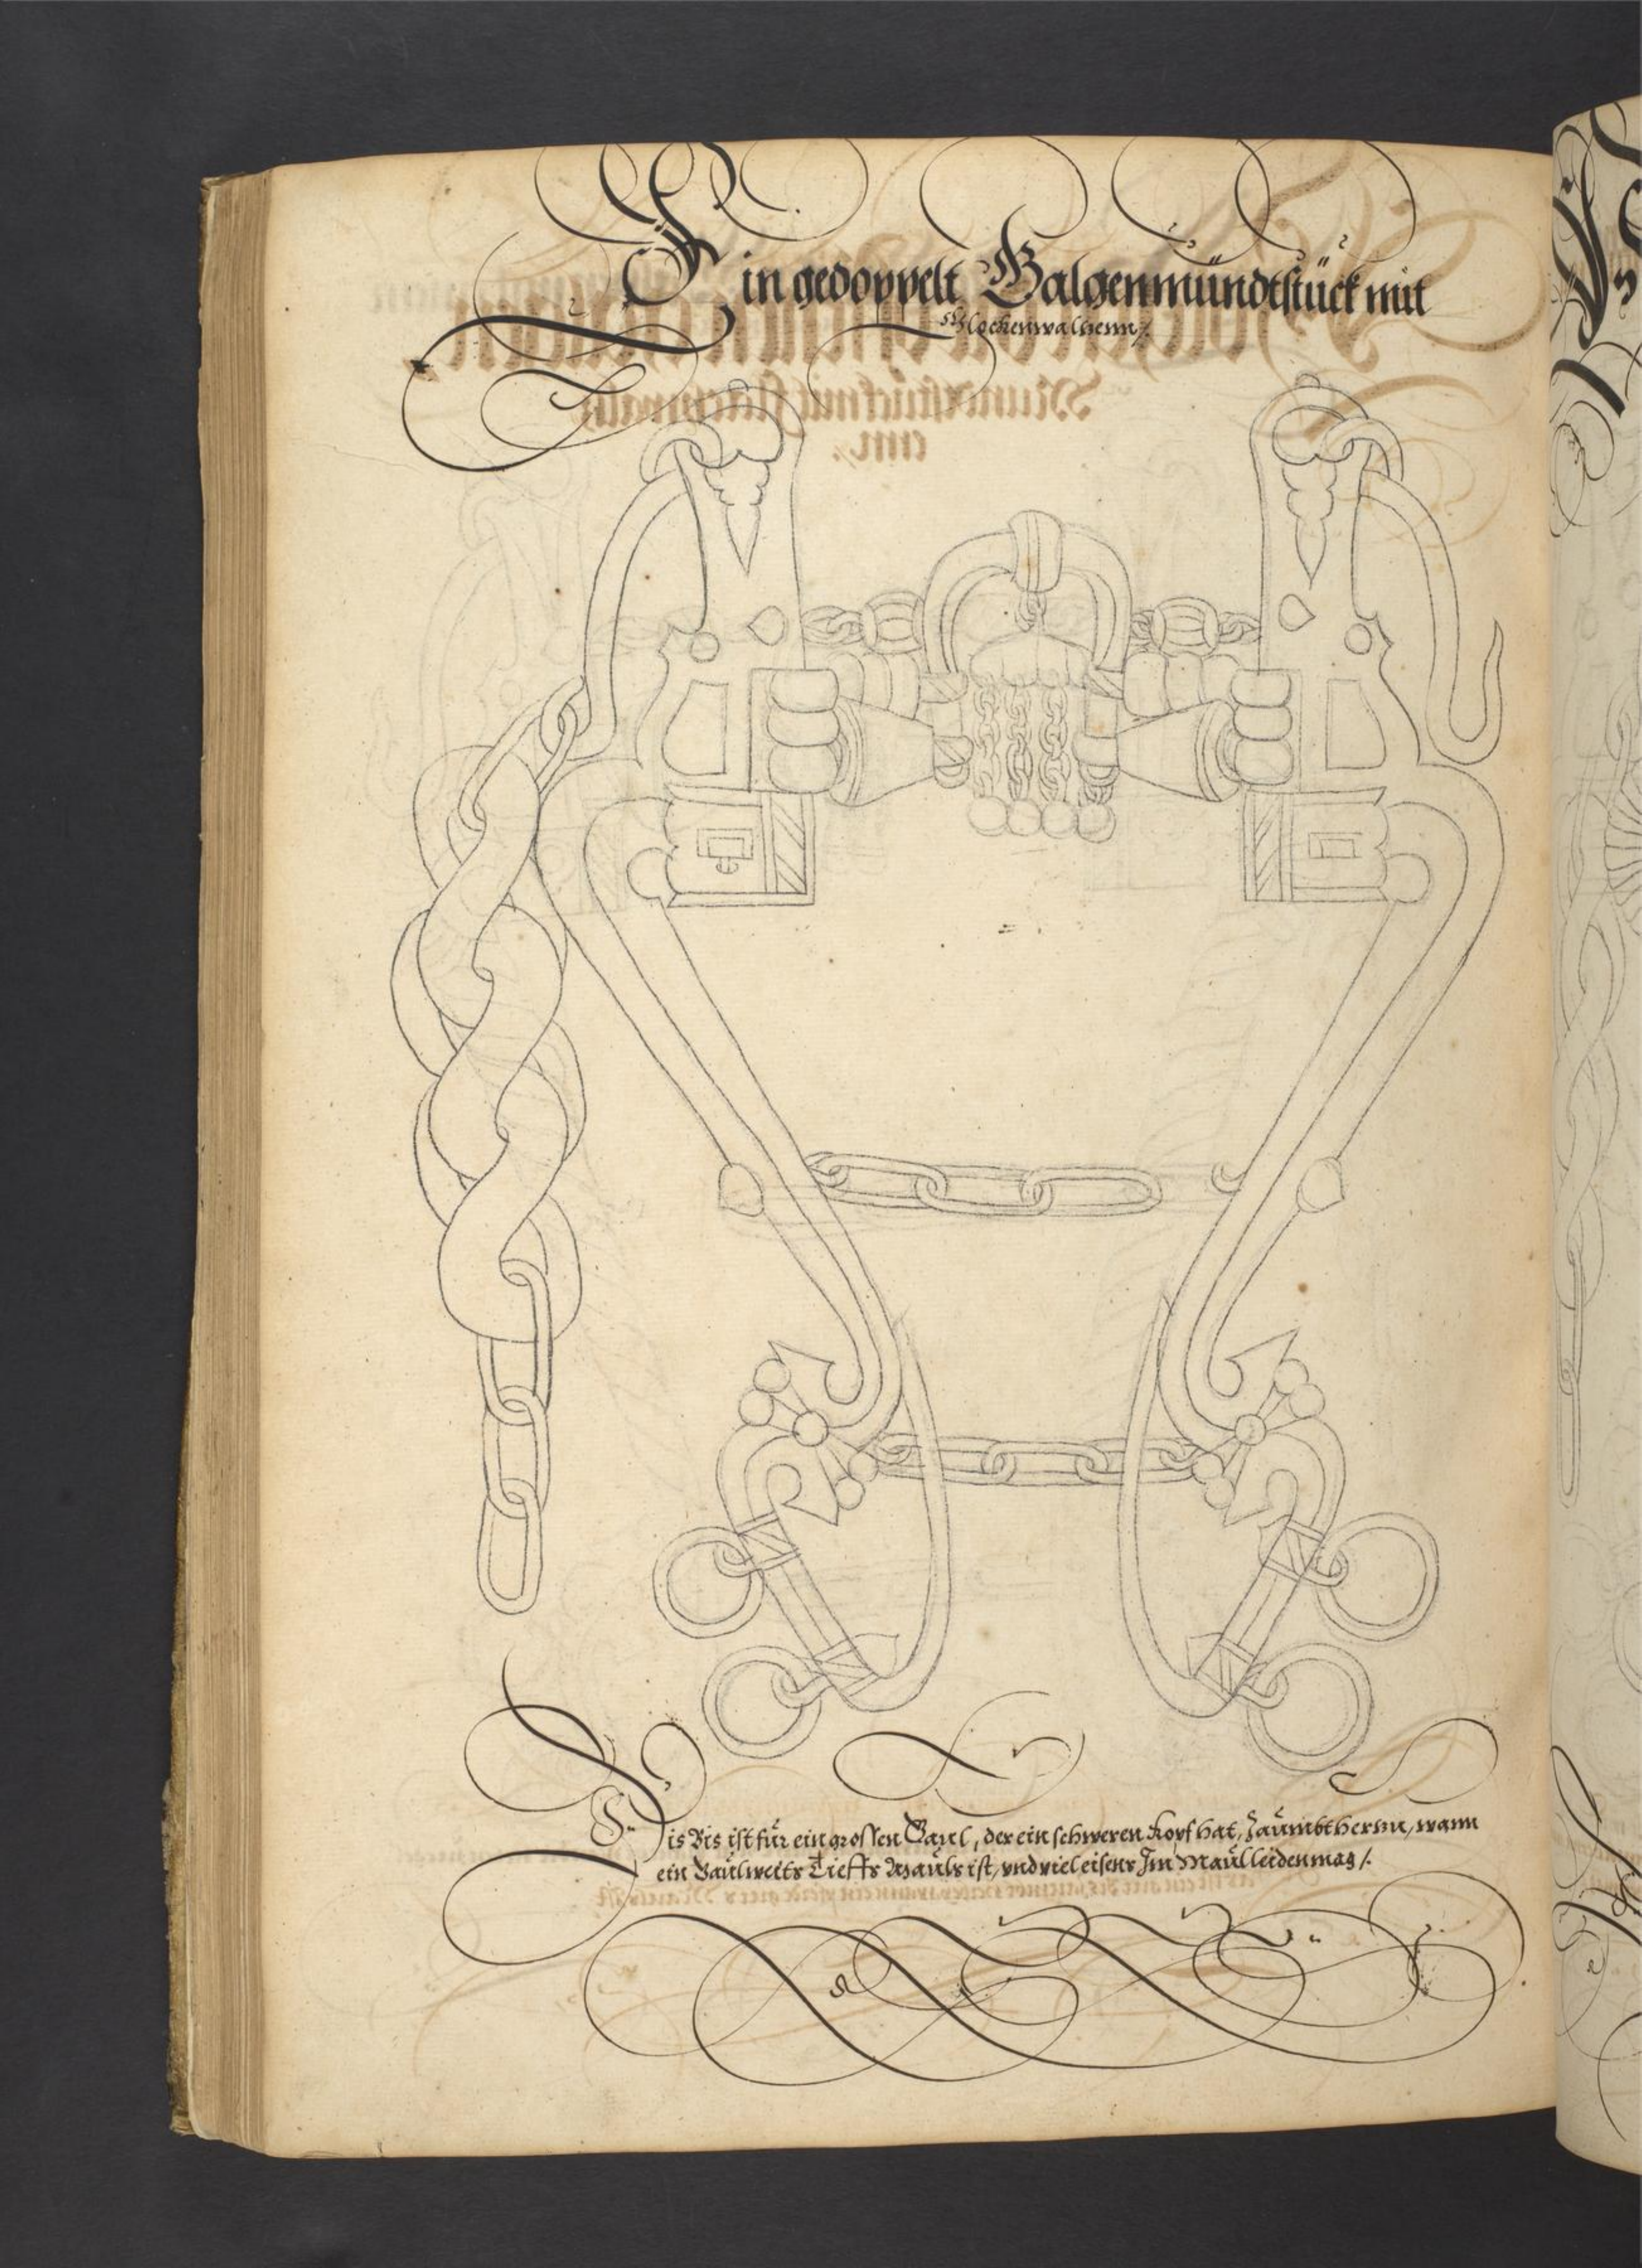 Ein gedoppelt Galgenmündtstück mit
Glockenwaltzenn /.
Dis Bis ist für ein grossen Gaul, der ein schweren Kopf hat, Zäumbt herun, wann
ein Gaul weits Tieffs Mauls ist, vnd viel eisens Im Maul leiden mag /.